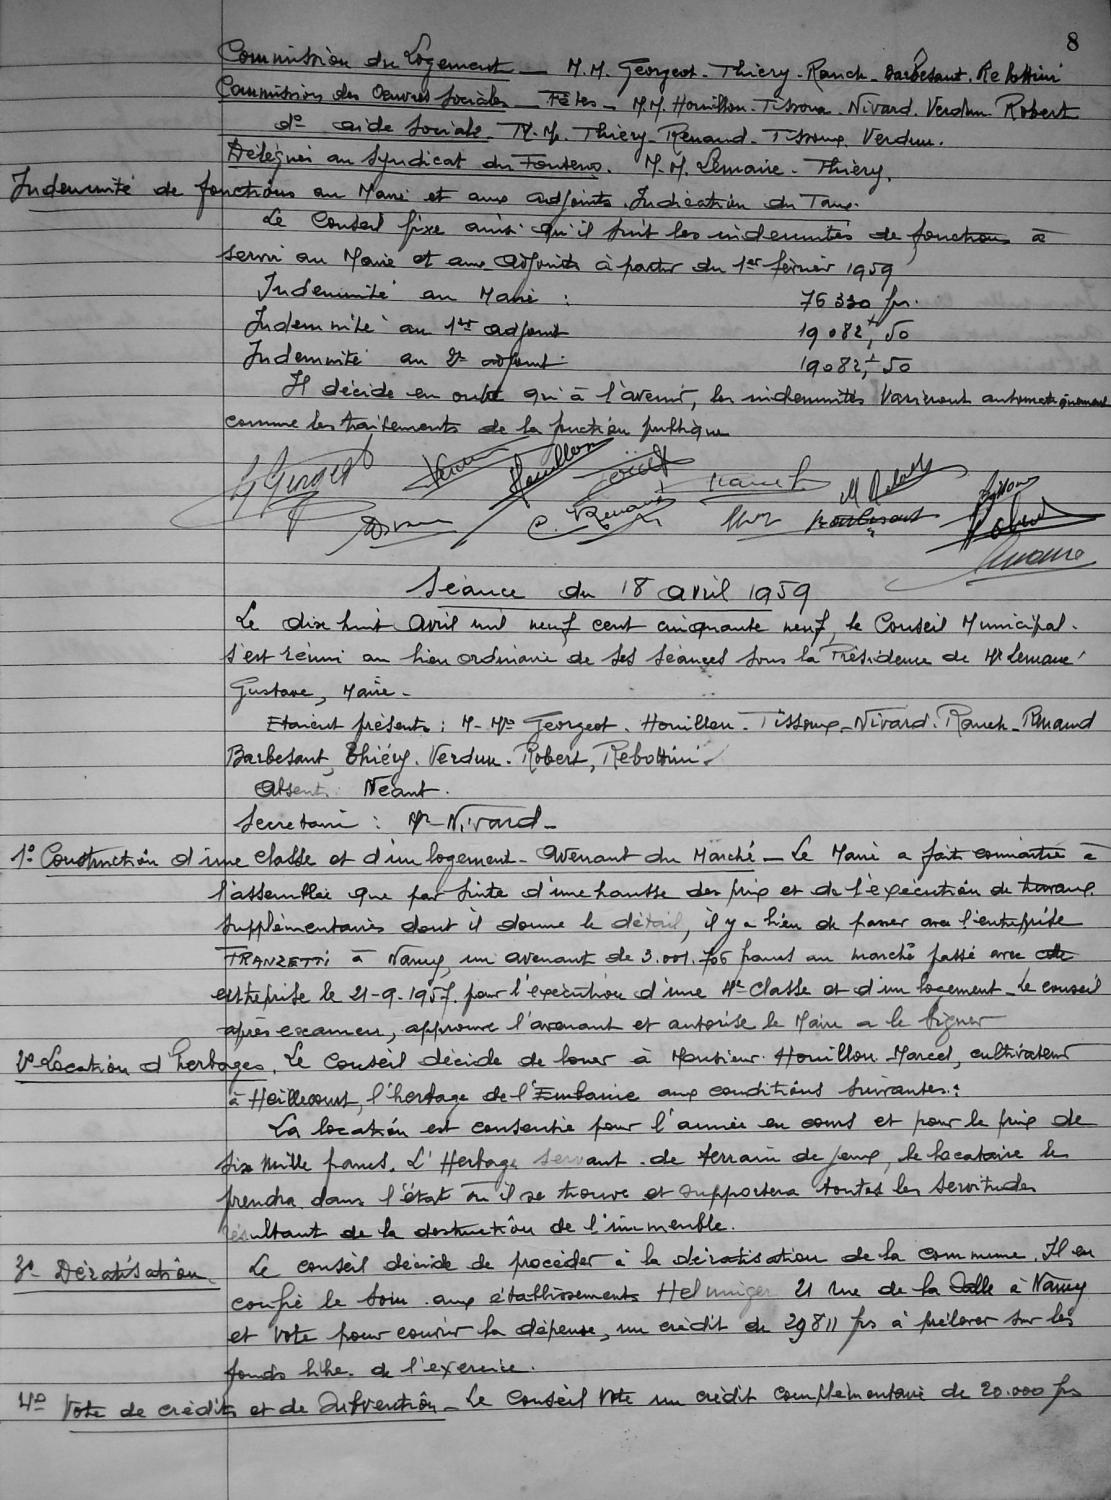 8
Commission du Logement _ M.M. Georgeot - Thiéry - Ranch - Barbesant. Rebottini
Commission des Oeuvres Sociales _ Fêtes _ M.M. Houillon. Tissoux. Nivard. Verdun. Robert
do aide sociale. M.M. Thiéry. Renaud. Tissoux. Verdun.
Délégués au Syndicat du M.M. Lemaire - Thiéry.
Indemnité de fonctions au Maire et aux adjoints. Indication du Taux.
Le Conseil fixe ainsi qu'il suit les indemnités de fonctions à
servir au Maire et aux adjoints à partir du 1er février 1959
Indemnité au Maire : 76 330 frs.
Indemnité au 1er adjoint 19 082, 50
Indemnité au 2e adjoint 19 082, 50
Il décide en outre qu'à l'avenir, les indemnités varieront automatiquement
comme les traitements de la fonction publique
Séance du 18 avril 1959
Le dix huit Avril mil neuf cent cinquante neuf, le Conseil Municipal.
s'est réuni au lieu ordinaire de ses séances sous la Présidence de Mr Lemaire
Gustave, Maire -
Etaient présents : M. Mrs Georgeot. Houillon. Tissoux. Nivard. Ranch. Renaud
Barbesant, Thiéry. Verdun. Robert, Rebottini.
Absent : Néant.
Secrétaire : Mr Nivard _
1° Construction d'une classe et d'un logement - Avenant du Marché _ Le Maire a fait connaître à
l'assemblée que par suite d'une hausse des prix et de l'exécution de travaux
supplémentaires dont il donne le détail, il y a lieu de passer avec l'entreprise
TRANZETTI à Nancy, un avenant de 3.001.706 francs au marché passé avec cette
entreprise le 21-9-1957 pour l'exécution d'une 4e classe et d'un logement _ Le conseil
après examen, approuve l'avenant et autorise le Maire a le signer
2° Location d'herbages. Le Conseil décide de louer à Monsieur Houillon Marcel, cultivateur
à Heillecourt, l'herbage de l'Embanie aux conditions suivantes :
La location est consentie pour l'année en cours et pour le prix de
six mille francs. L'Herbage servant de terrain de jeux, le locataire le
prendra dans l'état où il se trouve et supportera toutes les servitudes
résultant de la destruction de l'immeuble.
3° Dératisation. Le conseil décide de procéder à la dératisation de la commune. Il en
confie le soin aux établissements Helminger 21 rue de la Salle à Nancy
et vote pour couvrir la dépense, un crédit de 29811 frs à prélever sur les
fonds libr. de l'exercice.
4° Vote de crédits et de subvention _ Le Conseil Vote un crédit complémentaire de 20.000 frs